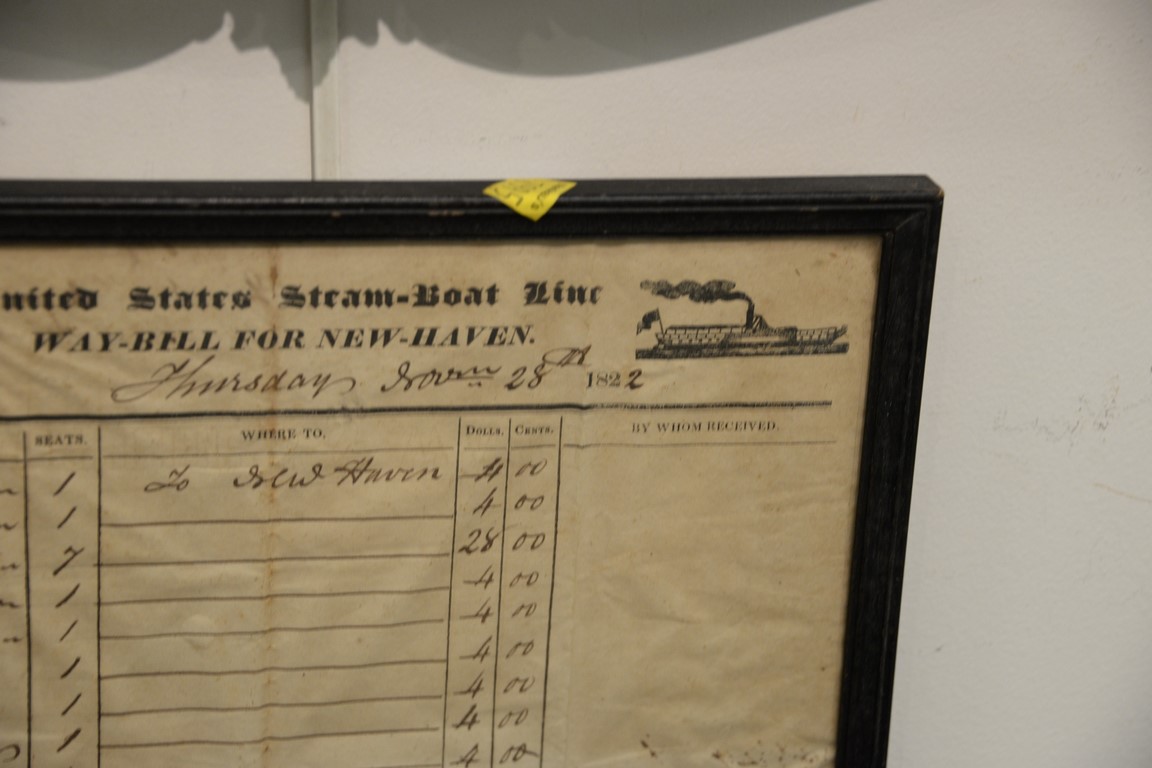 nited States Steam-Boat Line
WAY-BILL FOR NEW-HAVEN.
Thursday Novm 28th 1822
SEATS. WHERE TO. DOLLS. CENTS. BY WHOM RECEIVED.
1 To New Haven 4 00
1 4 00
7 28 00
1 4 00
1 4 00
1 4 00
1 4 00
1 4 00
4 00